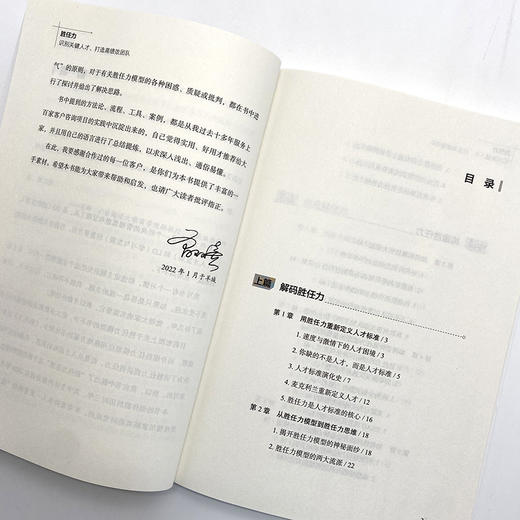 胜任力
识别关键人才、打造高绩效团队
气”的原则，对于有关胜任力模型的各种困惑、质疑或批判，都在书中进
行了探讨并给出了解决思路。
书中提到的方法论、流程、工具、案例，都是从我过去十多年服务上
百家客户咨询项目的实践中沉淀出来的，自己觉得实用、好用才推荐给大
家，并且用自己的语言进行了总结提炼，以求深入浅出、通俗易懂。
在此，我要感谢合作过的每一位客户，是你们为本书提供了丰富的一
手素材，希望本书能为大家带来帮助和启发，也请广大读者批评指正。
2022 年 1 月于羊城
目 录
上篇 解码胜任力
第 1 章 用胜任力重新定义人才标准 / 3
1. 速度与激情下的人才困境 / 3
2. 你缺的不是人才，而是人才标准 / 5
3. 人才标准演化史 / 7
4. 麦克利兰重新定义人才 / 12
5. 胜任力是人才标准的核心 / 16
第 2 章 从胜任力模型到胜任力思维 / 18
1. 揭开胜任力模型的神秘面纱 / 18
2. 胜任力模型的两大流派 / 22